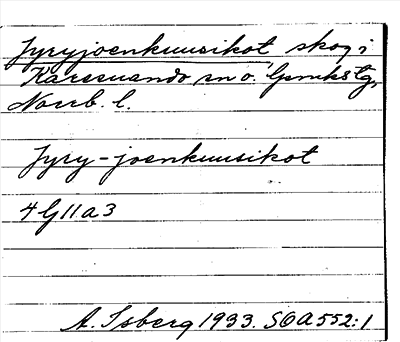 Jyryjoenkuusikot, skog i
Karesuando sn o. lpmkstg,
Norrb. l.
Jyry-joenkuusikot
4 G 11 a 3
A. Isberg 1933. SOA 552:1